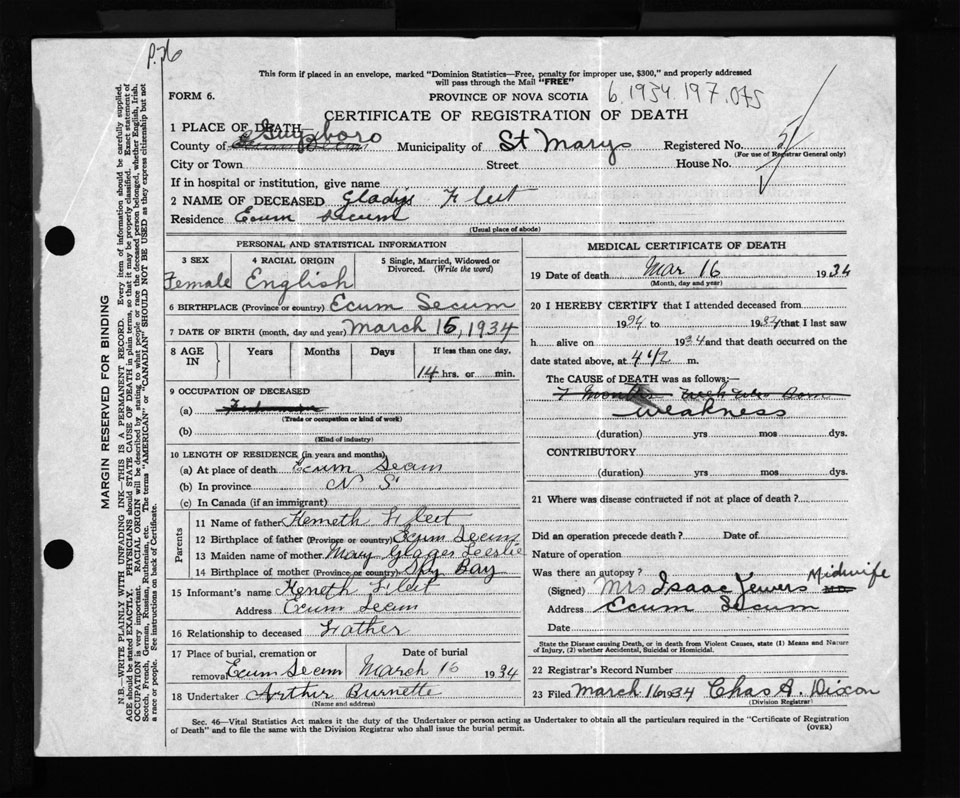 P.26
This form if placed in an envelope, marked "Dominion Statistics—Free, penalty for improper use, $300," and properly addressed
will pass through the Mail "FREE"
FORM 6.
PROVINCE OF NOVA SCOTIA
6.1934.197.075
CERTIFICATE OF REGISTRATION OF DEATH
1 PLACE OF DEATH
County of Guysboro Municipality of St Marys Registered No.
(For use of Registrar General only)
City or Town Street House No.
If in hospital or institution, give name
2 NAME OF DECEASED Gladys Fleet
Residence Ecum Secum
(Usual place of abode)
PERSONAL AND STATISTICAL INFORMATION
3 SEX Female
4 RACIAL ORIGIN English
5 Single, Married, Widowed or Divorced. (Write the word)
6 BIRTHPLACE (Province or country) Ecum Secum
7 DATE OF BIRTH (month, day and year) March 15, 1934
8 AGE IN Years Months Days If less than one day,
14 hrs. or min.
9 OCCUPATION OF DECEASED
(a)
(Trade or occupation or kind of work)
(b)
(Kind of industry)
10 LENGTH OF RESIDENCE (in years and months)
(a) At place of death Ecum Secum
(b) In province N S
(c) In Canada (if an immigrant)
Parents
11 Name of father Kenneth Fleet
12 Birthplace of father (Province or country) Ecum Secum
13 Maiden name of mother Mary Gladys Leslie
14 Birthplace of mother (Province or country) Spy Bay
15 Informant's name Keneth Fleet
Address Ecum Secum
16 Relationship to deceased Father
17 Place of burial, cremation or removal Ecum Secum
Date of burial March 16 1934
18 Undertaker Arthur Burnette
(Name and address)
MEDICAL CERTIFICATE OF DEATH
19 Date of death Mar 16 1934
(Month, day and year)
20 I HEREBY CERTIFY that I attended deceased from
1934 to 1934 that I last saw
h alive on 1934 and that death occurred on the
date stated above, at 4 1/2 m.
The CAUSE of DEATH was as follows:—
7 months when born
weakness
(duration) yrs mos dys.
CONTRIBUTORY
(duration) yrs mos dys.
21 Where was disease contracted if not at place of death?
Did an operation precede death? Date of
Nature of operation
Was there an autopsy?
(Signed) Mrs Isaac Jewers Midwife
Address Ecum Secum
Date
State the Disease causing Death, or in death from Violent Causes, state (1) Means and Nature
of Injury, (2) whether Accidental, Suicidal or Homicidal.
22 Registrar's Record Number
23 Filed March 16 1934 Chas A. Dixon
(Division Registrar)
Sec. 46—Vital Statistics Act makes it the duty of the Undertaker or person acting as Undertaker to obtain all the particulars required in the "Certificate of Registration
of Death" and to file the same with the Division Registrar who shall issue the burial permit.
(OVER)
MARGIN RESERVED FOR BINDING
N.B.—WRITE PLAINLY WITH UNFADING INK—THIS IS A PERMANENT RECORD. Every item of information should be carefully supplied.
AGE should be stated EXACTLY. PHYSICIANS should STATE CAUSE OF DEATH in plain terms, so that it may be properly classified. Exact statement of
OCCUPATION is very important. RACIAL ORIGIN will be described by stating to what people or race the deceased person belonged, whether English, Irish,
Scotch, French, German, Russian, Ruthenian, etc. The terms "AMERICAN" or "CANADIAN" SHOULD NOT BE USED as they express citizenship but not
a race or people. See instructions on back of Certificate.